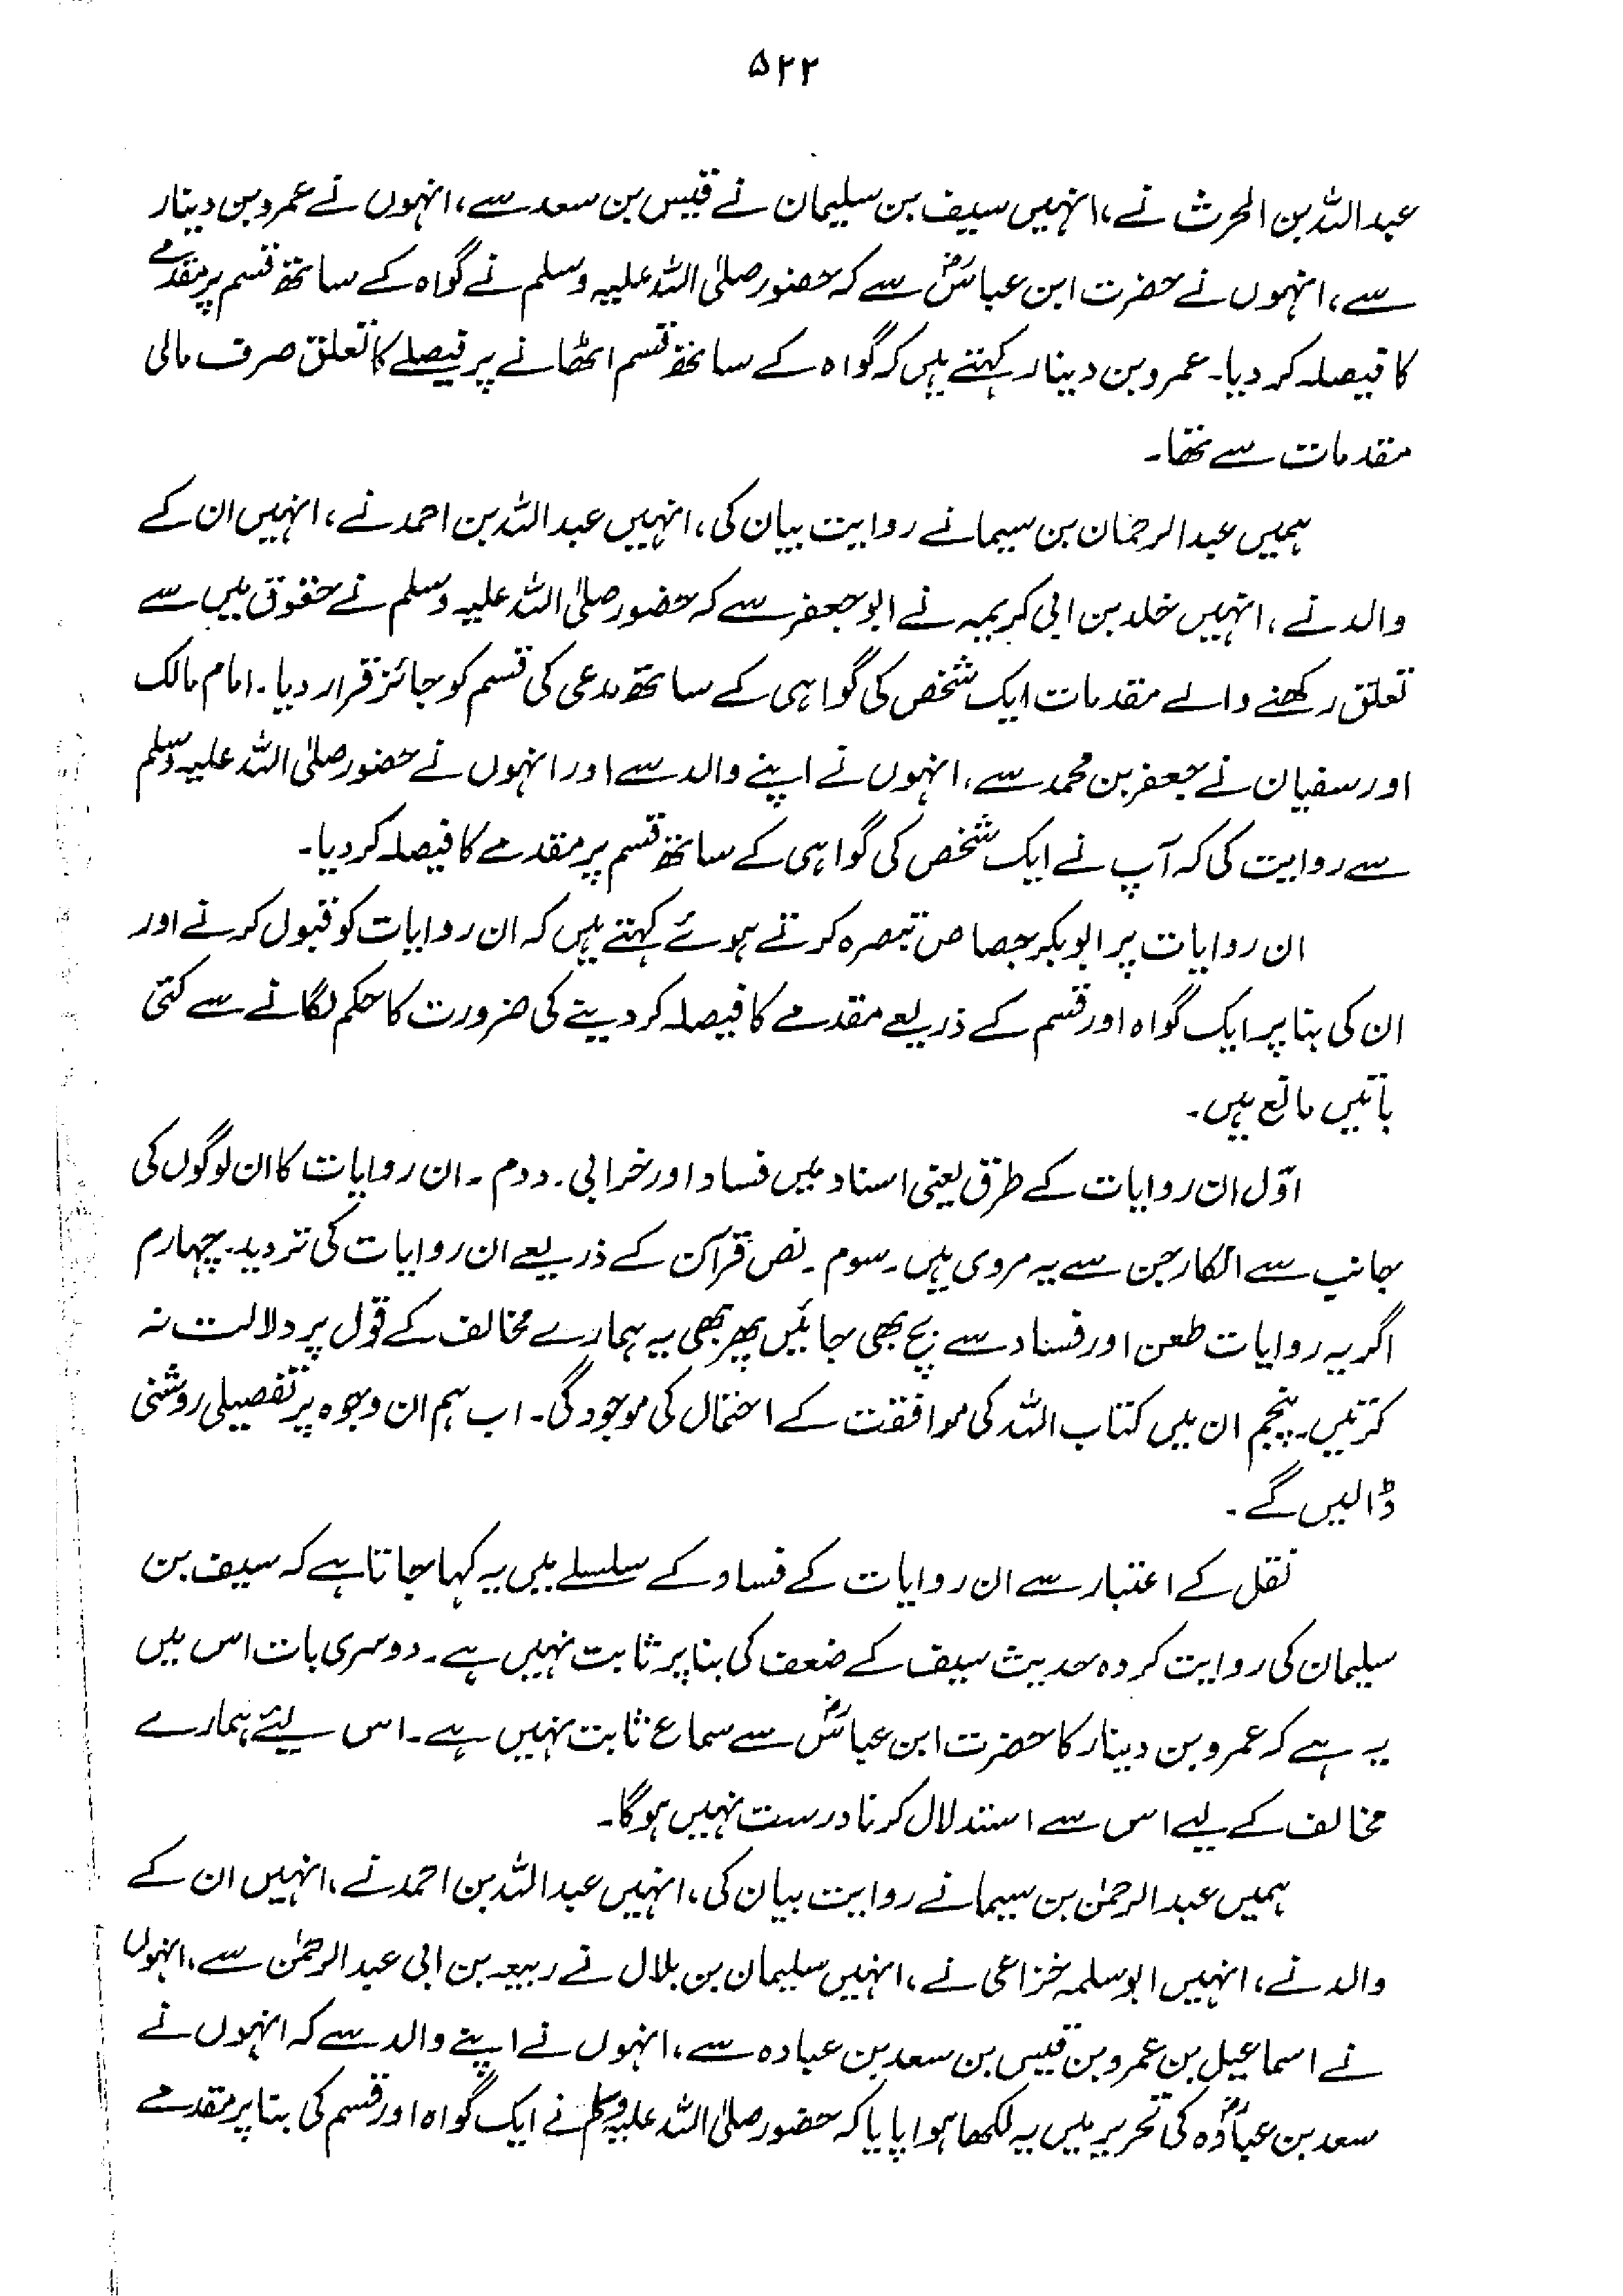 ۵۲۲
عبداللہ بن الحرث نے، انہیں سیف بن سلیمان نے قیس بن سعد سے، انہوں نے عمرو بن دینار
سے، انہوں نے حضرت ابن عباسؓ سے کہ حضور صلی اللہ علیہ وسلم نے گواہ کے ساتھ قسم پر مقدمے
کا فیصلہ کر دیا۔ عمرو بن دینار کہتے ہیں کہ گواہ کے ساتھ قسم اٹھانے پر فیصلے کا تعلق صرف مالی
مقدمات سے تھا۔
ہمیں عبدالرحمان بن سیما نے روایت بیان کی، انہیں عبداللہ بن احمد نے، انہیں ان کے
والد نے، انہیں خلد بن ابی کریمہ نے ابوجعفر سے کہ حضور صلی اللہ علیہ وسلم نے حقوق میں سے
تعلق رکھنے والے مقدمات ایک شخص کی گواہی کے ساتھ مدعی کی قسم کو جائز قرار دیا۔ امام مالک
اور سفیان نے جعفر بن محمد سے، انہوں نے اپنے والد سے اور انہوں نے حضور صلی اللہ علیہ وسلم
سے روایت کی کہ آپ نے ایک شخص کی گواہی کے ساتھ قسم پر مقدمے کا فیصلہ کر دیا۔
ان روایات پر ابوبکر جصاص تبصرہ کرتے ہوئے کہتے ہیں کہ ان روایات کو قبول کرنے اور
ان کی بنا پر ایک گواہ اور قسم کے ذریعے مقدمے کا فیصلہ کر دینے کی ضرورت کا حکم لگانے سے کئی
باتیں مانع ہیں۔
اوّل ان روایات کے طرق یعنی اسناد میں فساد اور خرابی۔ دوم۔ ان روایات کا ان لوگوں کی
جانب سے انکار جن سے یہ مروی ہیں۔ سوم۔ نص قرآن کے ذریعے ان روایات کی تردید۔ چہارم
اگر یہ روایات طعن اور فساد سے بچ بھی جائیں پھر بھی یہ ہمارے مخالف کے قول پر دلالت نہ
کرتیں۔ پنجم ان میں کتاب اللہ کی موافقت کے احتمال کی موجودگی۔ اب ہم ان وجوہ پر تفصیلی روشنی
ڈالیں گے۔
نقل کے اعتبار سے ان روایات کے فساد کے سلسلے میں یہ کہا جاتا ہے کہ سیف بن
سلیمان کی روایت کردہ حدیث سیف کے ضعف کی بنا پر ثابت نہیں ہے۔ دوسری بات اس میں
یہ ہے کہ عمرو بن دینار کا حضرت ابن عباسؓ سے سماع ثابت نہیں ہے۔ اس لیئے ہمارے
مخالف کے لیے اس سے استدلال کرنا درست نہیں ہوگا۔
ہمیں عبدالرحمٰن بن سیما نے روایت بیان کی، انہیں عبداللہ بن احمد نے، انہیں ان کے
والد نے، انہیں ابوسلمہ خزاعی نے، انہیں سلیمان بن بلال نے ربیعہ بن ابی عبدالرحمٰن سے، انہوں
نے اسماعیل بن عمرو بن قیس بن سعد بن عبادہ سے، انہوں نے اپنے والد سے کہ انہوں نے
سعد بن عبادؓہ کی تحریر میں یہ لکھا ہوا پایا کہ حضور صلی اللہ علیہ وسلم نے ایک گواہ اور قسم کی بنا پر مقدمے